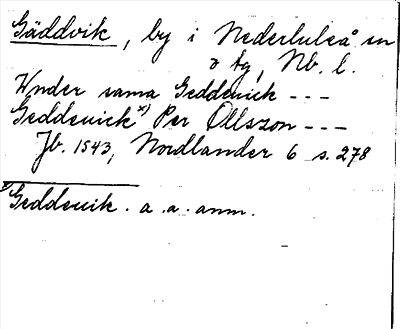 Gäddvik, by i Nederluleå sn
o tg, Nb. l.
Under sama Geddeuick - - -
Geddeuick x) Per Ollszon - - -
Jb. 1543, Nordlander 6 s. 278
x) Geddeuik. a. a. anm.